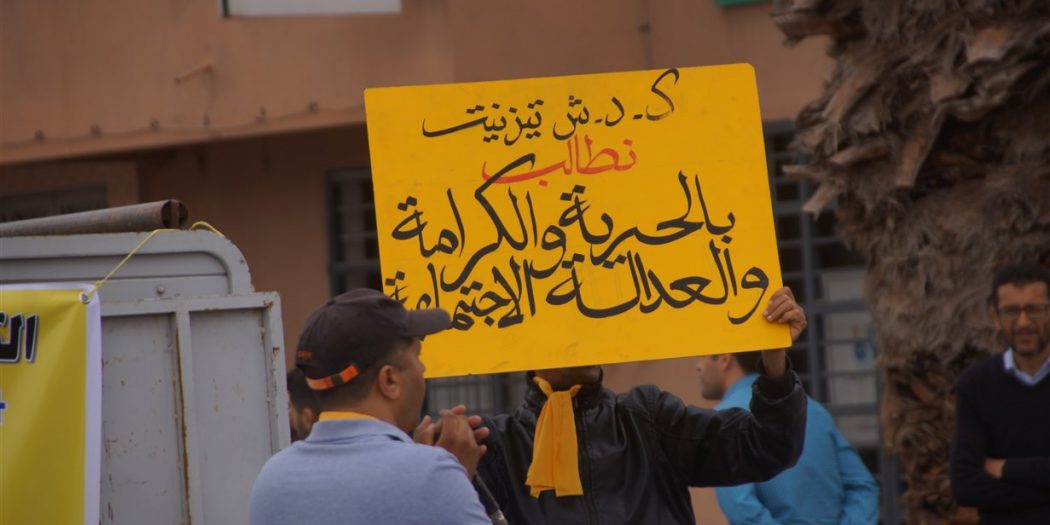 ك.د.ش تيزنيت
نطالب
بالحرية والكرامة
والعدالة الاجتماعية